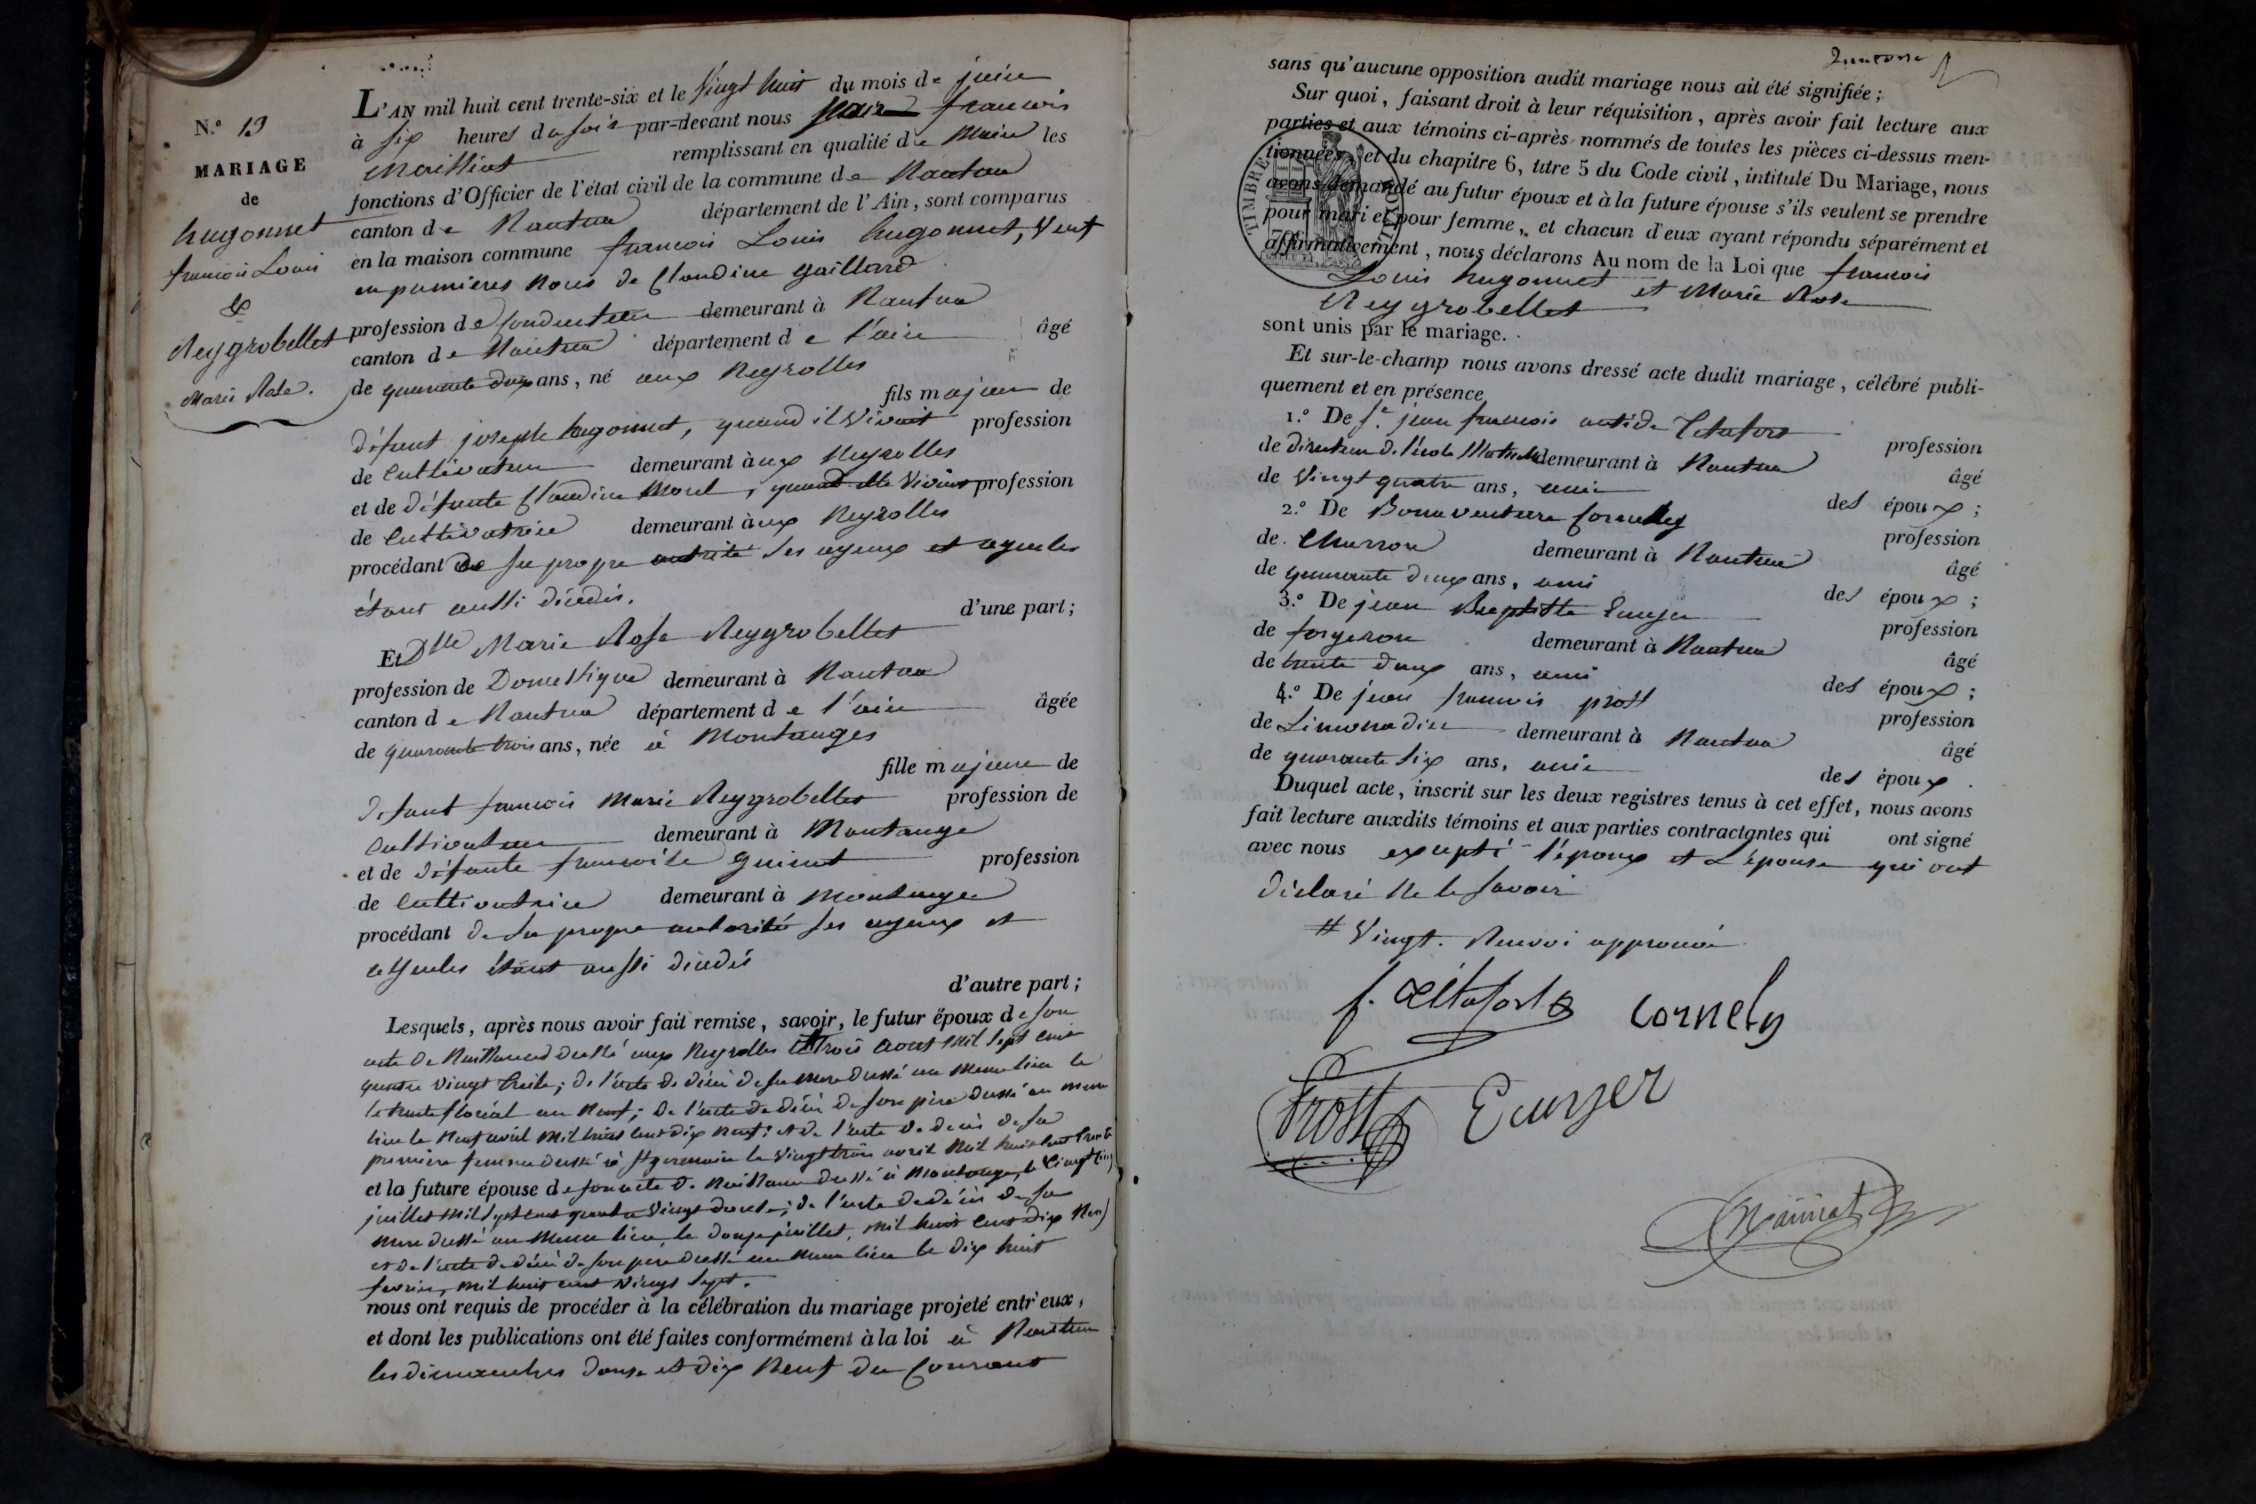 N.º 13
MARIAGE
de
hugonnet
françois Louis
&
Reygrobellet
Marie Rose.
L'AN mil huit cent trente-six et le Vingt huit du mois de juin
à six heures du soir par-devant nous françois
remplissant en qualité de Maire les
fonctions d'Officier de l'état civil de la commune de Nantua
canton de Nantua département de l'Ain, sont comparus
en la maison commune françois Louis hugonnet, Veuf
en premieres Noces de Claudine gaillard
profession de Conducteur demeurant à Nantua
canton de Nantua département de l'ain âgé
de quarante deux ans, né aux Neyrolles
fils majeur de
défunt joseph hugonnet, quand il Vivait profession
de Cultivateur demeurant aux Neyrolles
et de défunte Claudine Morel, quand elle Vivait profession
de Cultivatrice demeurant aux Neyrolles
procédant de sa propre autorité ses ayeux et ayeules
étant aussi décédés.
d'une part;
Et Dlle Marie Rose Reygrobellet
profession de Domestique demeurant à Nantua
canton de Nantua département de l'ain âgée
de quarante trois ans, née à Montanges
fille majeure de
défunt françois Marie Reygrobellet profession de
Cultivateur demeurant à Montange
et de défunte françoise guinet profession
de Cultivatrice demeurant à Montange
procédant de sa propre autorité ses ayeux et
ayeules étant aussi décédés
d'autre part;
Lesquels, après nous avoir fait remise, savoir, le futur époux de son
acte de Naissance dressé aux Neyrolles le trois aout Mil Sept cent
quatre vingt treize; de l'acte de décès de sa mere dressé au même lieu le
trente floréal an Neuf; de l'acte de décès de son père dressé au même
lieu le Neuf avril Mil huit cent dix Neuf; et de l'acte de décès de sa
première femme dressé à St germain le Vingt trois avril Mil huit cent trente
et la future épouse de son acte de Naissance dressé à Montange, le Vingt cinq
juillet Mil Sept cent quatre Vingt douze; de l'acte de décès de sa
mere dressé au même lieu le douze juillet, Mil huit cent dix Neuf
et de l'acte de décès de son pere dressé au même lieu le dix huit
fevrier, Mil huit cent Vingt Sept.
nous ont requis de procéder à la célébration du mariage projeté entr'eux,
et dont les publications ont été faites conformément à la loi à Nantua
les dimanches douze et dix Neuf du Courant
sans qu'aucune opposition audit mariage nous ait été signifiée;
Sur quoi, faisant droit à leur réquisition, après avoir fait lecture aux
parties et aux témoins ci-après nommés de toutes les pièces ci-dessus men-
tionnées, et du chapitre 6, titre 5 du Code civil, intitulé Du Mariage, nous
avons demandé au futur époux et à la future épouse s'ils veulent se prendre
pour mari et pour femme, et chacun d'eux ayant répondu séparément et
affirmativement, nous déclarons Au nom de la Loi que françois
Louis hugonnet et Marie Rose
Reygrobellet
sont unis par le mariage.
Et sur-le-champ nous avons dressé acte dudit mariage, célébré publi-
quement et en présence
1.º De Sr. jean françois
profession
de directeur de l'école demeurant à Nantua
âgé
de Vingt quatre ans, ami
des époux;
2.º De Bonaventure Cornely
profession
de Charron demeurant à Nantua
âgé
de quarante deux ans, ami
des époux;
3.º De jean Baptiste
profession
de forgeron demeurant à Nantua
âgé
de trente deux ans, ami
des époux;
4.º De jean françois prost
profession
de Limonadier demeurant à Nantua
âgé
de quarante Six ans, ami
des époux.
Duquel acte, inscrit sur les deux registres tenus à cet effet, nous avons
fait lecture auxdits témoins et aux parties contractantes qui ont signé
avec nous excepté l'époux et L'épouse qui ont
déclaré Ne le Savoir
# Vingt. Renvoi approuvé
Cornely
Prost
TIMBRE ROYAL
70c